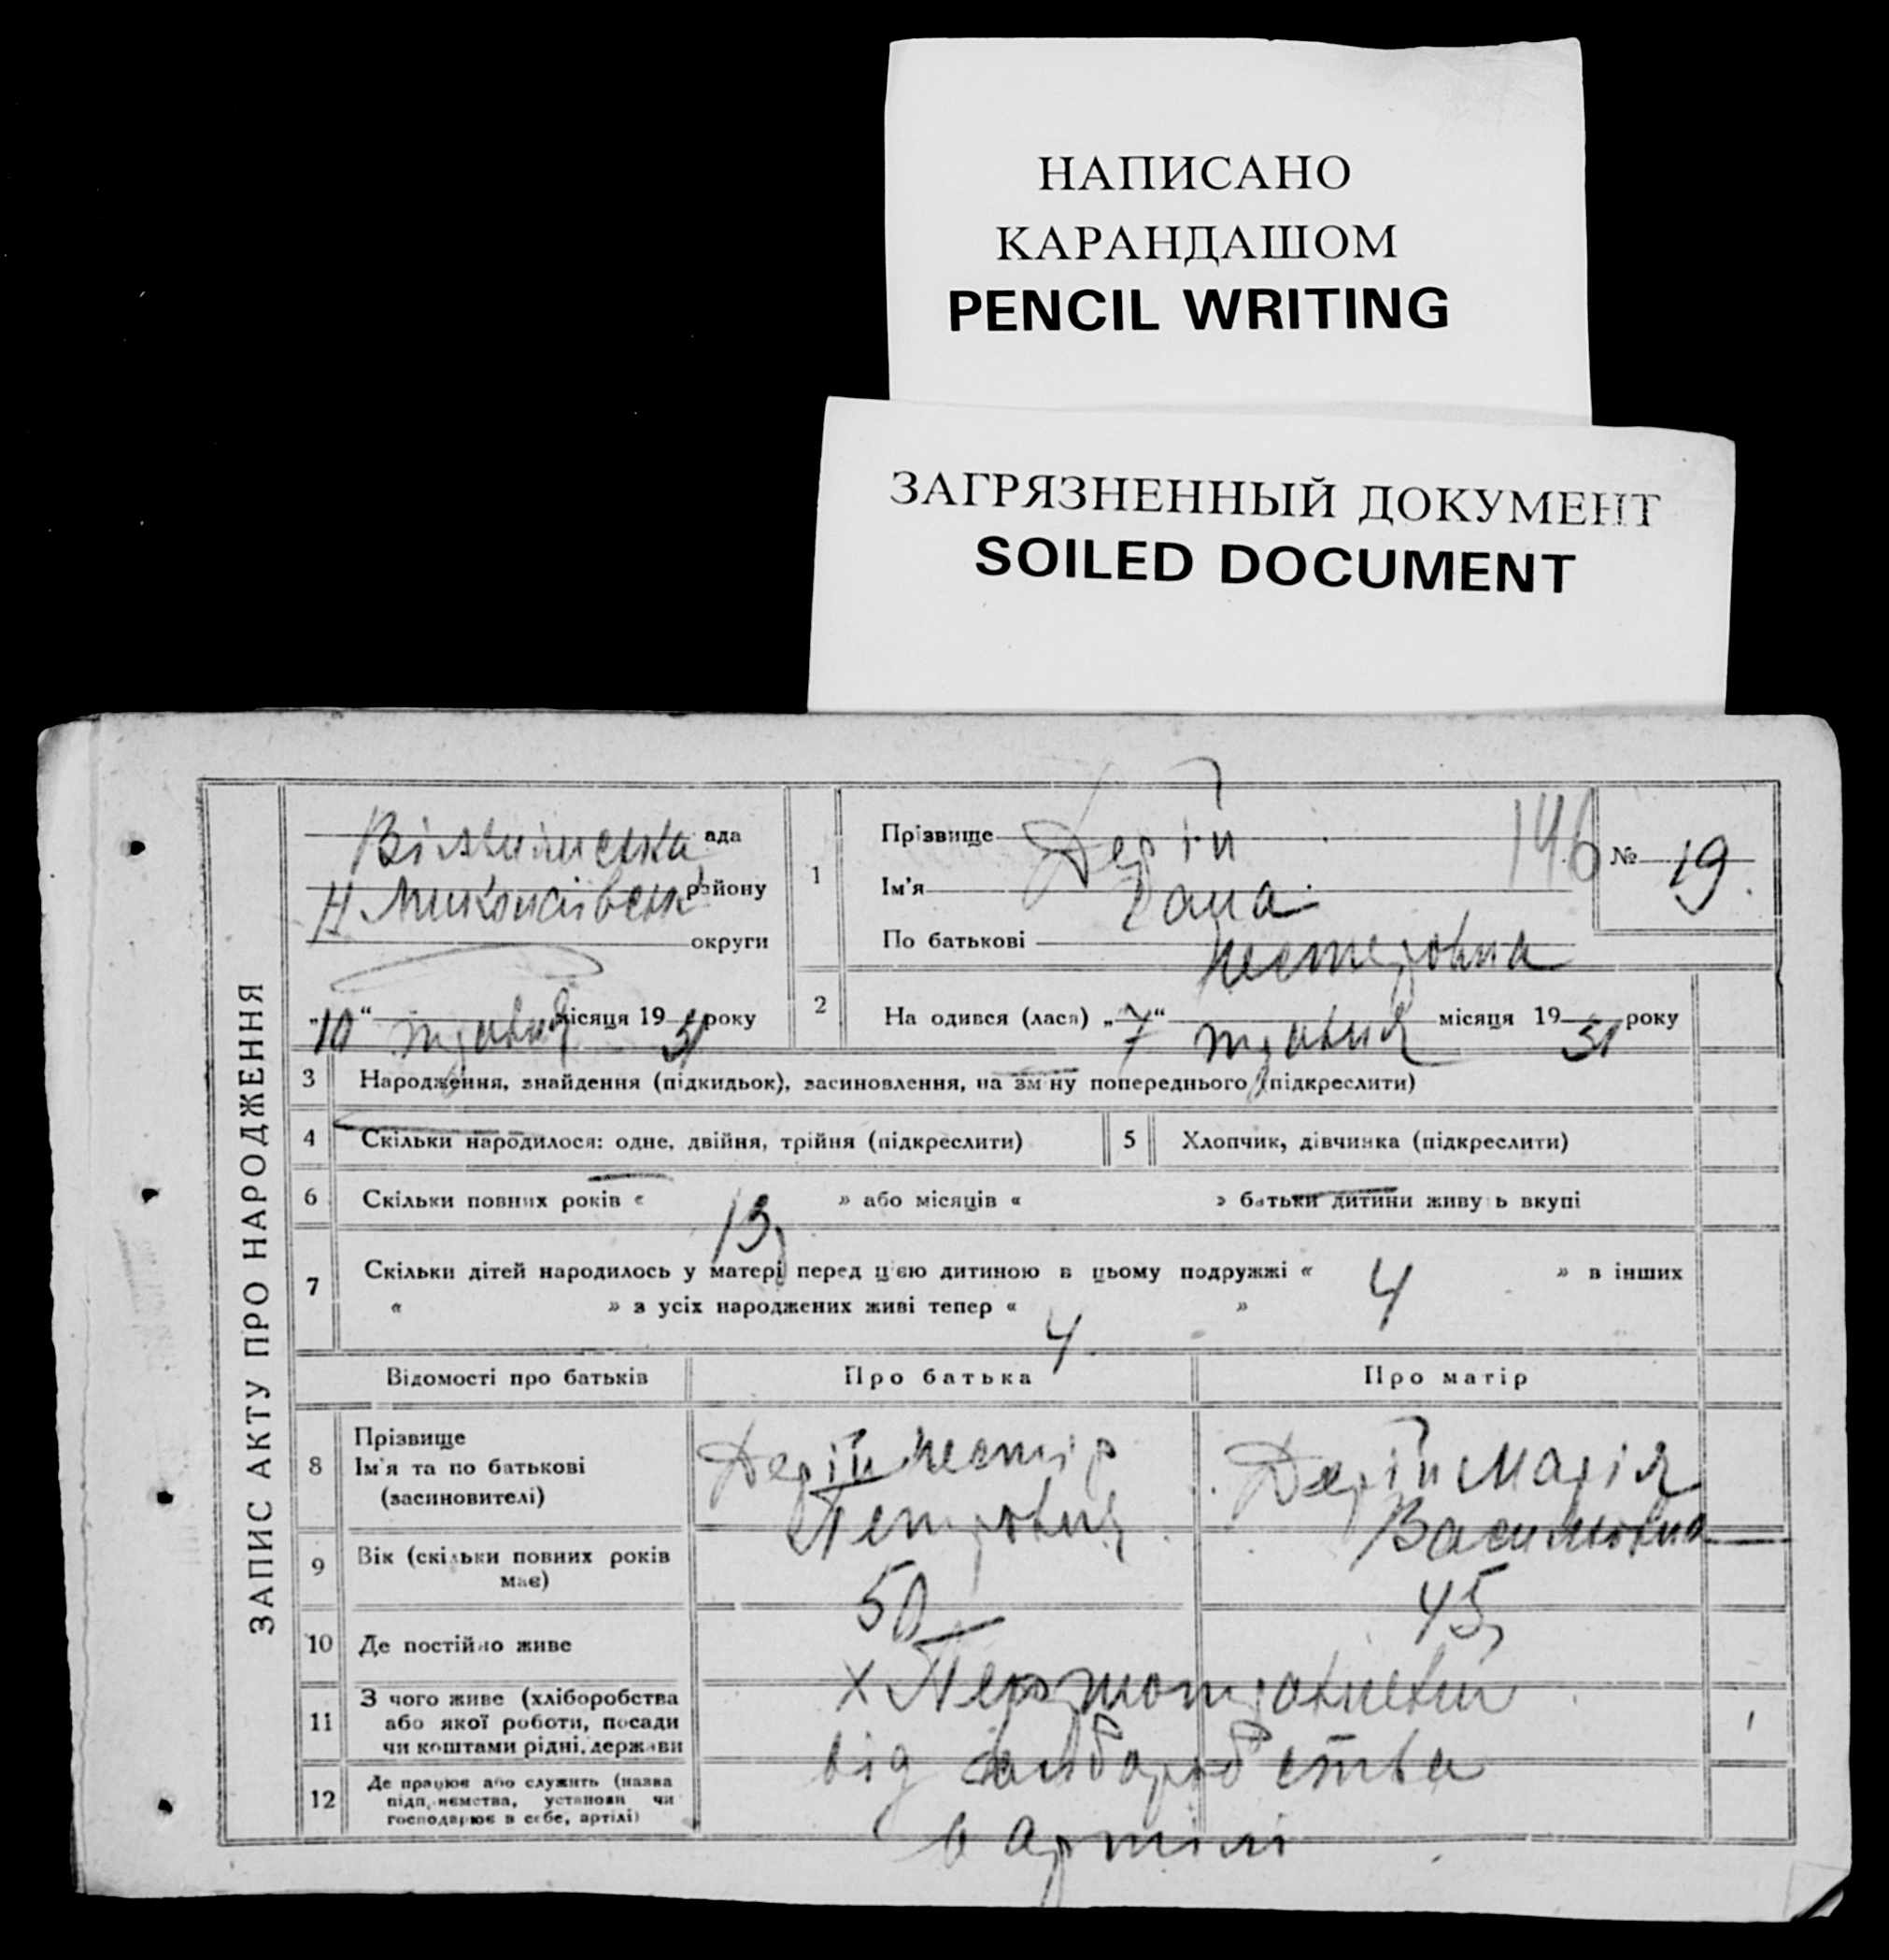 НАПИСАНО
КАРАНДАШОМ
PENCIL WRITING
ЗАГРЯЗНЕННЫЙ ДОКУМЕНТ
SOILED DOCUMENT
ЗАПИС АКТУ ПРО НАРОДЖЕННЯ
ада
Н Миколаївськ району
округи
„10“ травня місяця 19 31 року
1
Прізвище Дерій
146
№ 19.
Ім'я
По батькові Несторовна
2
На одився (лася) „7“ травня місяця 19 31 року
3 Народження, знайдення (підкидьок), засиновлення, на зміну попереднього (підкреслити)
4 Скільки народилося: одне, двійня, трійня (підкреслити)
5 Хлопчик, дівчинка (підкреслити)
6 Скільки повних років « 13 » або місяців « » батьки дитини живуть вкупі
7 Скільки дітей народилось у матері перед цією дитиною в цьому подружжі « 4 » в інших
« » з усіх народжених живі тепер « 4 »
Відомості про батьків Про батька Про матір
8 Прізвище
Ім'я та по батькові
(засиновителі)
Дерій Нестір
Петрович
Дерій Марія
Василівна
9 Вік (скільки повних років
має)
50
45
10 Де постійно живе
х Першотравневий
11 З чого живе (хліборобства
або якої роботи, посади
чи коштами рідні, держави
від хліборобства
12 Де працює або служить (назва
підприємства, установи чи
господарює в себе, артілі)
в артілі